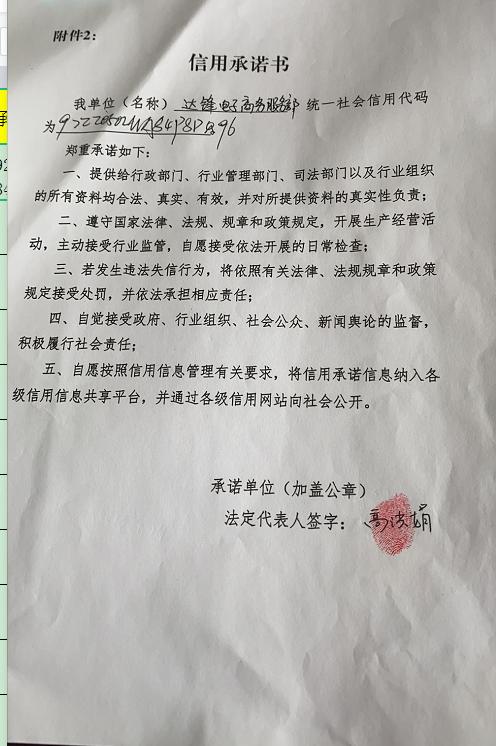 附件2:
信用承诺书
我单位（名称）达锋电子商务服务部 统一社会信用代码
为
郑重承诺如下：
一、提供给行政部门、行业管理部门、司法部门以及行业组织
的所有资料均合法、真实、有效，并对所提供资料的真实性负责；
二、遵守国家法律、法规、规章和政策规定，开展生产经营活
动，主动接受行业监管，自愿接受依法开展的日常检查；
三、若发生违法失信行为，将依照有关法律、法规规章和政策
规定接受处罚，并依法承担相应责任；
四、自觉接受政府、行业组织、社会公众、新闻舆论的监督，
积极履行社会责任；
五、自愿按照信用信息管理有关要求，将信用承诺信息纳入各
级信用信息共享平台，并通过各级信用网站向社会公开。
承诺单位（加盖公章）
法定代表人签字：高洪娟